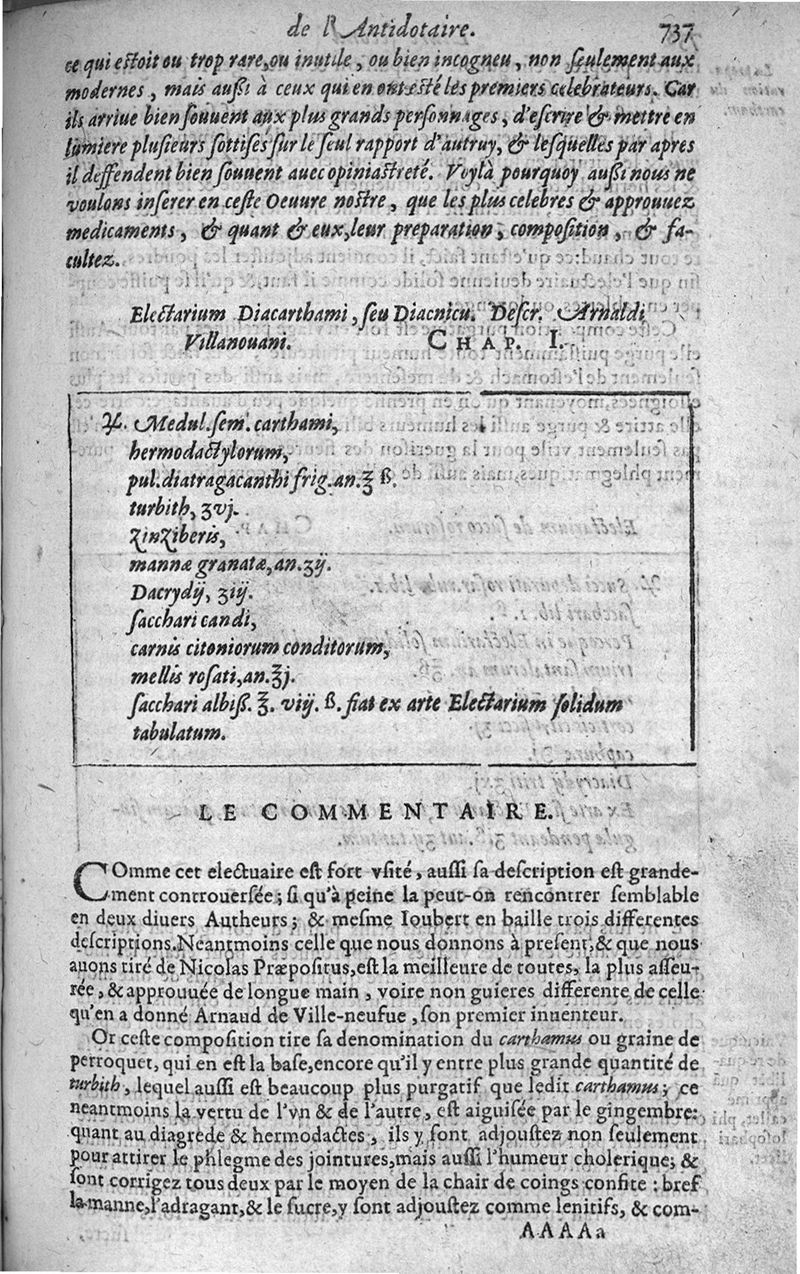 de l'Antidotaire. 737
ce qui estoit ou trop rare, ou inutile, ou bien incogneu, non seulement aux
modernes, mais aussi à ceux qui en ont esté les premiers celebrateurs. Car
ils arriue bien souuent aux plus grands personnages, d'escrire & mettre en
lumiere plusieurs sottises sur le seul rapport d'autruy, & lesquelles par apres
il deffendent bien souuent auec opiniastreté. Voylà pourquoy aussi nous ne
voulons inserer en ceste Oeuure nostre, que les plus celebres & approuuez
medicaments, & quant & eux, leur preparation, composition, & fa-
cultez.
Electarium Diacarthami, seu Diacnicu. Descr. Arnaldi
Villanouani. CHAP. I.
♃. Medul. sem. carthami,
hermodactylorum,
pul. diatragacanthi frig. an. ℥ ß.
turbith, ʒvj.
Zinziberis,
mannæ granatæ, an. ʒij.
Dacrydij, ʒiij.
sacchari candi,
carnis citoniorum conditorum,
mellis rosati, an. ℥j.
sacchari albiss. ℥. viij. ß. fiat ex arte Electarium solidum
tabulatum.
LE COMMENTAIRE.
COmme cet electuaire est fort vsité, aussi sa description est grande-
ment controuersée; si qu'à peine la peut-on rencontrer semblable
en deux diuers Autheurs; & mesme Ioubert en baille trois differentes
descriptions. Neantmoins celle que nous donnons à present, & que nous
auons tiré de Nicolas Præpositus, est la meilleure de toutes, la plus asseu-
rée, & approuuée de longue main, voire non guieres differente de celle
qu'en a donné Arnaud de Ville-neufue, son premier inuenteur.
Or ceste composition tire sa denomination du carthamus ou graine de
perroquet, qui en est la base, encore qu'il y entre plus grande quantité de
turbith, lequel aussi est beaucoup plus purgatif que ledit carthamus; ce
neantmoins la vertu de l'vn & de l'autre, est aiguisée par le gingembre:
quant au diagrede & hermodactes, ils y sont adjoustez non seulement
pour attirer le phlegme des jointures, mais aussi l'humeur cholerique; &
sont corrigez tous deux par le moyen de la chair de coings confite: bref
la manne, l'adragant, & le sucre, y sont adjoustez comme lenitifs, & com-
AAAAa